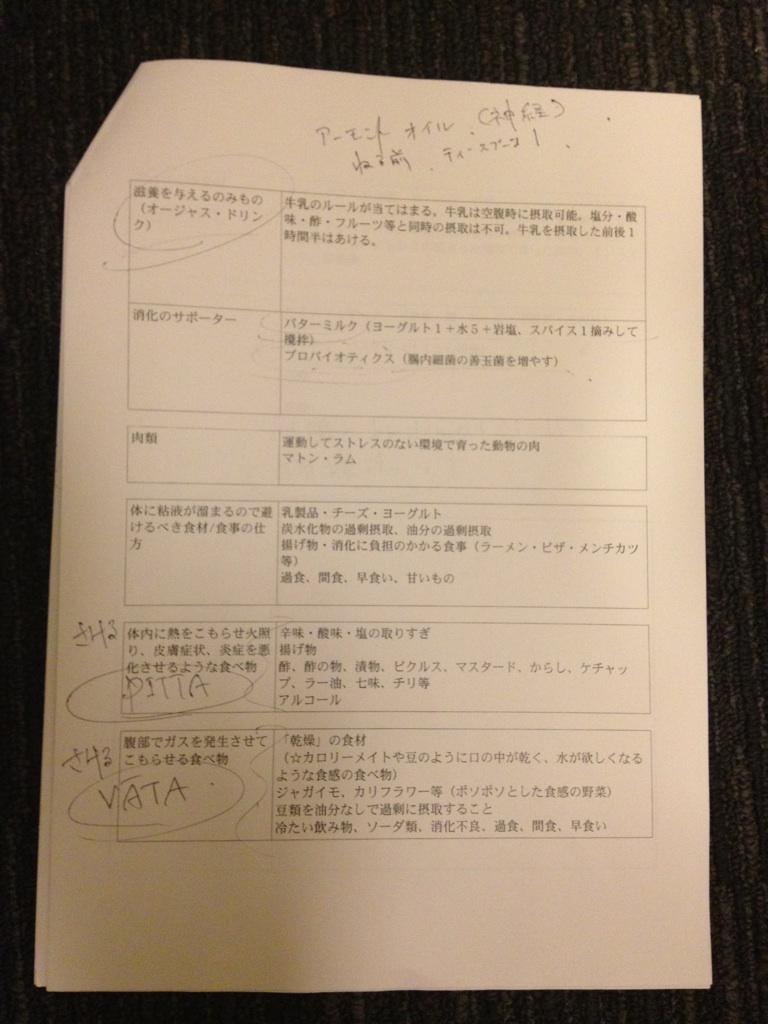 アーモンド オイル (神経)
ねる前 ティースプーン 1
滋養を与えるのみもの
(オージャス・ドリン
ク)
牛乳のルールが当てはまる。牛乳は空腹時に摂取可能。塩分・酸
味・酢・フルーツ等と同時の摂取は不可。牛乳を摂取した前後1
時間半はあける。
消化のサポーター
バターミルク(ヨーグルト1+水5+岩塩、スパイス1摘みして
攪拌)
プロバイオティクス(腸内細菌の善玉菌を増やす)
肉類
運動してストレスのない環境で育った動物の肉
マトン・ラム
体に粘液が溜まるので避
けるべき食材/食事の仕
方
乳製品・チーズ・ヨーグルト
炭水化物の過剰摂取、油分の過剰摂取
揚げ物・消化に負担のかかる食事(ラーメン・ピザ・メンチカツ
等)
過食、間食、早食い、甘いもの
さける
体内に熱をこもらせ火照
り、皮膚症状、炎症を悪
化させるような食べ物
PITTA
辛味・酸味・塩の取りすぎ
揚げ物
酢、酢の物、漬物、ピクルス、マスタード、からし、ケチャッ
プ、ラー油、七味、チリ等
アルコール
さける
腹部でガスを発生させて
こもらせる食べ物
VATA
「乾燥」の食材
(☆カロリーメイトや豆のように口の中が乾く、水が欲しくなる
ような食感の食べ物)
ジャガイモ、カリフラワー等(ポソポソとした食感の野菜)
豆類を油分なしで過剰に摂取すること
冷たい飲み物、ソーダ類、消化不良、過食、間食、早食い